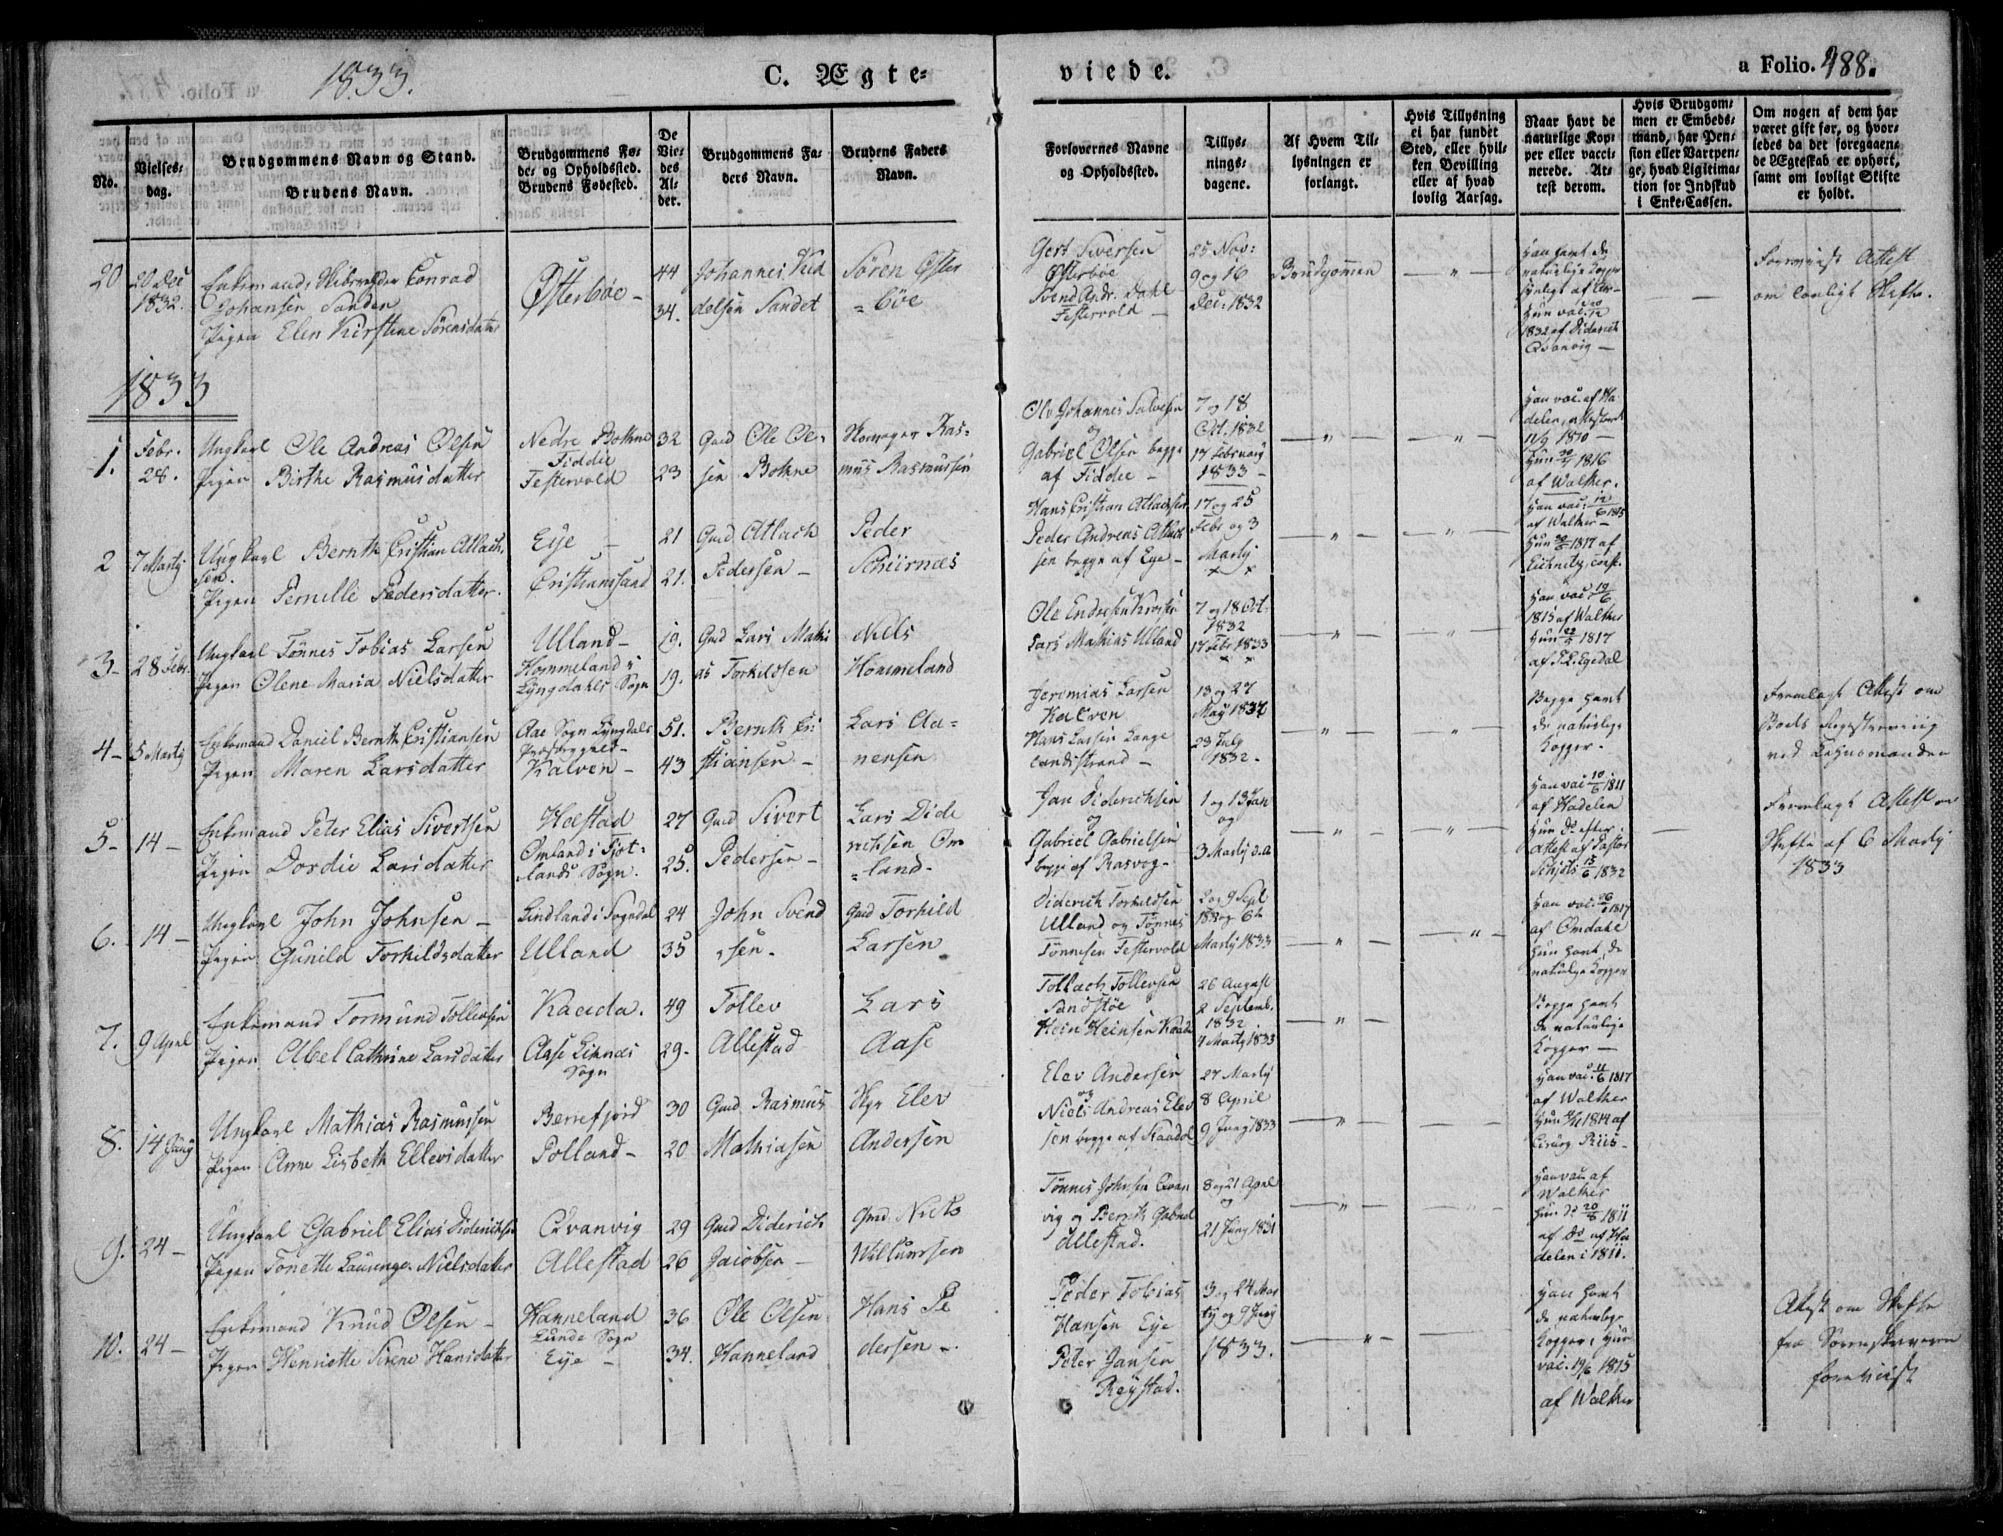 1833.
C. Ægteviede.
a Folio. 488.
No.
Vielsesdag.
Brudgommens Navn og Stand.
Brudens Navn.
Brudgommens Føde- og Opholdssted.
Brudens Fødested.
De Viedes Alder.
Brudgommens Faders Navn.
Brudens Faders Navn.
Forlovernes Navne og Opholdssted.
Tillysningsdagene.
Af Hvem Tillysningen er forlangt.
Hvis Tillysning ei har fundet Sted, eller hvilken Bevilling eller af hvad lovlig Aarsag.
Naar havt de naturlige Kopper eller vaccinerede. Attest derom.
Hvis Brudgommen er Embedsmand, har Pension eller Vartpenge, hvad Ligitimation for Indskud i Enke-Cassen.
Om nogen af dem har været gift før, og hvorledes da det foregaaende Ægteskab er ophørt, samt om lovligt Skifte er holdt.
20 20 Dec 1832. Enkemand, Conrad Johansen Sanden
Pigen Elen Kirstine Sörensdatter
Østerbøe 44 34. Johannes Sandet Sören Østerbøe
Gert Siversen Østerbøe
Svend Andr. Dahl Festervold
25 Nov: 9 og 16 Dec: 1832
Brudgommen
Han havt de naturlige Kopper
Hun vac. 1832 af Diderich Qvanvig
Foreviist Attest om lovligt Skifte.
1833
1. Febr. 28. Ungkarl Ole Andreas Olsen
Pigen Birthe Rasmusdatter
Nedre Bothne Fiddie
Festervold
32 23 Gmd Ole Olsen Bothne
Rasmus Rasmussen
Ole Johannes Salvesen og Gabriel Olsen begge af Fiddie
7 og 18 Oct. 1832 17 February 1833
Han vac. af Hadelen 11/9 1810
Hun 1816 af Walker.
2 7 Martj Ungkarl Bernth Cristian Atlachsen.
Pigen Pernille Pedersdatter.
Eye
Cristianssand
21 21. Gmd Atlach Pedersen
Peder Schürnes
Hans Cristian Atlachsen
Peder Andreas Atlachsen begge af Eye
17 og 25 Febr og 3 Martj
Han vac. 1815 af Walker
Hun 1817 af
3 28 Febr. Ungkarl Tönnes Tobias Larsen
Pigen Olene Maria Nielsdatter
Ulland
Hommeland i Lyngdahls Sogn
19. 19. Gmd Lars Mathias Torkildsen
Niels Hommeland
Ole Endresen
Lars Mathias Ulland
7 og 18 Oct. 1832 17 Febr 1833
Han vac. 1815 af Walker
Hun 1817 af Egedal
4 5 Martj Enkemand Daniel Bernth Cristiansen
Pigen Maren Larsdatter
Aae Sogn Lyngdals Præstegjeld
Kalven
51. 43 Bernth Cristiansen
Lars Aanensen
Jeremias Larsen Kalven
Hans Larsen Langelandsstrand
13 og 27 May 1832 29 July 1832.
Begge havt de naturlige Kopper.
Fremlagt Attest om Boets Registrering ved Lehnsmanden
5 14 Enkemand Peter Elias Sivertsen
Pigen Dordie Larsdatter
Hæstad
Omland i Fjotlands Sogn.
27 25. Gmd Sivert Pedersen
Lars Diderichsen Omland
Jan Diderichsen og Gabriel Gabrielsen begge af Rasvog
1 og 13 Jan og 3 Martj d.a
Han vac. 1811 af Hadelen
Hun Do efter Attest af Pastor 1832
Fremlagt Attest om Skifte af 6 Martj 1833
6. 14 Ungkarl John Johnsen
Pigen Gunild Torkildsdatter
Lindland i Sogndal
Ulland
24 35 John Svendsen.
Gmd Torkild Larsen
Diderich Torkildsen Ulland og Tönnes Tönnesen Festervold
2 og 9 Sept 1832 Martj 1833
Han vac. 1817 af Omdahl
Hun havt de naturlige Kopper
7. 9 April Enkemand Tormund Tollevsen
Pigen Abel Cathrine Larsdatter
Kaada.
Aase Liknes Sogn
49 29. Tollev Allestad
Lars Aase
Tollach Tollevsen Sandstöe
Hein Heinsen Kaada
26 August 2 Septemb. 1832 4 Martj 1833
Begge havt de naturlige Kopper
8. 14 Juny Ungkarl Mathias Rasmussen
Pigen Anne Lisbeth Ellevsdatter
Berrefjord
Polland
30 20 Gmd Rasmus Mathiasen
Elev Andersen
Elev Andersen og Niels Andreas Elevsen begge af
27 Martj 8 April 9 Juny 1833
Han vac. 11/6 1817 af Walker
Hun 1814 af
9. 24 Ungkarl Gabriel Elias Diderichsen
Pigen Tonette Laurenze Nielsdatter
Qvanvig
Allestad
29 26 Gmd Diderich Jacobsen
Gmd. Niels Willumsen
Tönnes Johnsen Qvanvig og Bernth Gabriel Allestad.
8 og 21 April og 21 Juny 1831
Han vac. af Walker
Hun Do 1811 af Do af Hadelen i 1811.
10. 24 Enkemand Knud Olsen
Pigen Henriette Sirene Hansdatter
Hanneland Lunde Sogn
Eye
36 34. Ole Olsen Hanneland
Hans Pedersen
Peder Tobias Hansen Eye
Peter Jansen Reystad.
3 og 24 Martj og 9 Juny 1833.
Han havt de naturlige Kopper, Hun vac. 19/6 1815 af Walker
Attest om Skifte fra Sorenskriveren foreviist